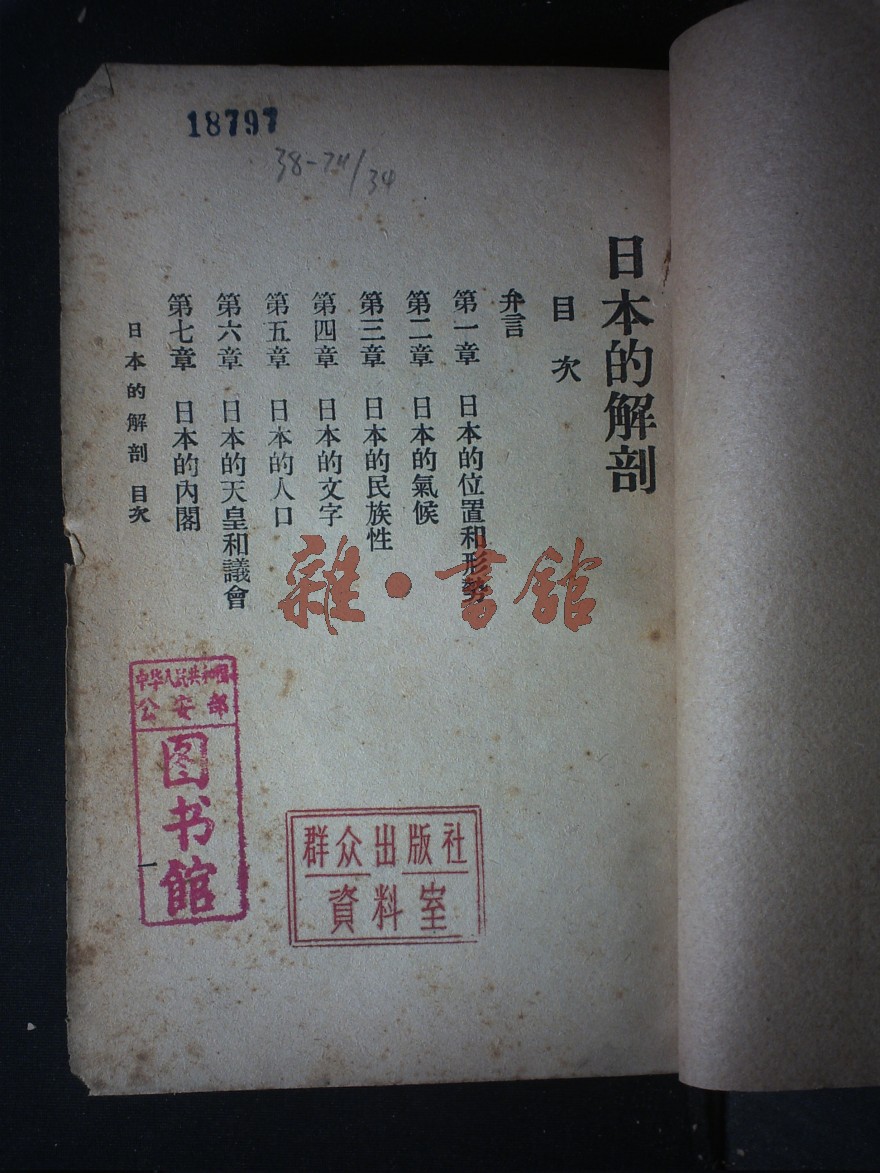 18797
38-74/34
日本的解剖
目次
弁言
第一章 日本的位置和形勢
第二章 日本的氣候
第三章 日本的民族性
第四章 日本的文字
第五章 日本的人口
第六章 日本的天皇和議會
第七章 日本的內閣
日本的解剖 目次
一
雜·書館
中华人民共和国
公安部
图书馆
群众出版社
資料室